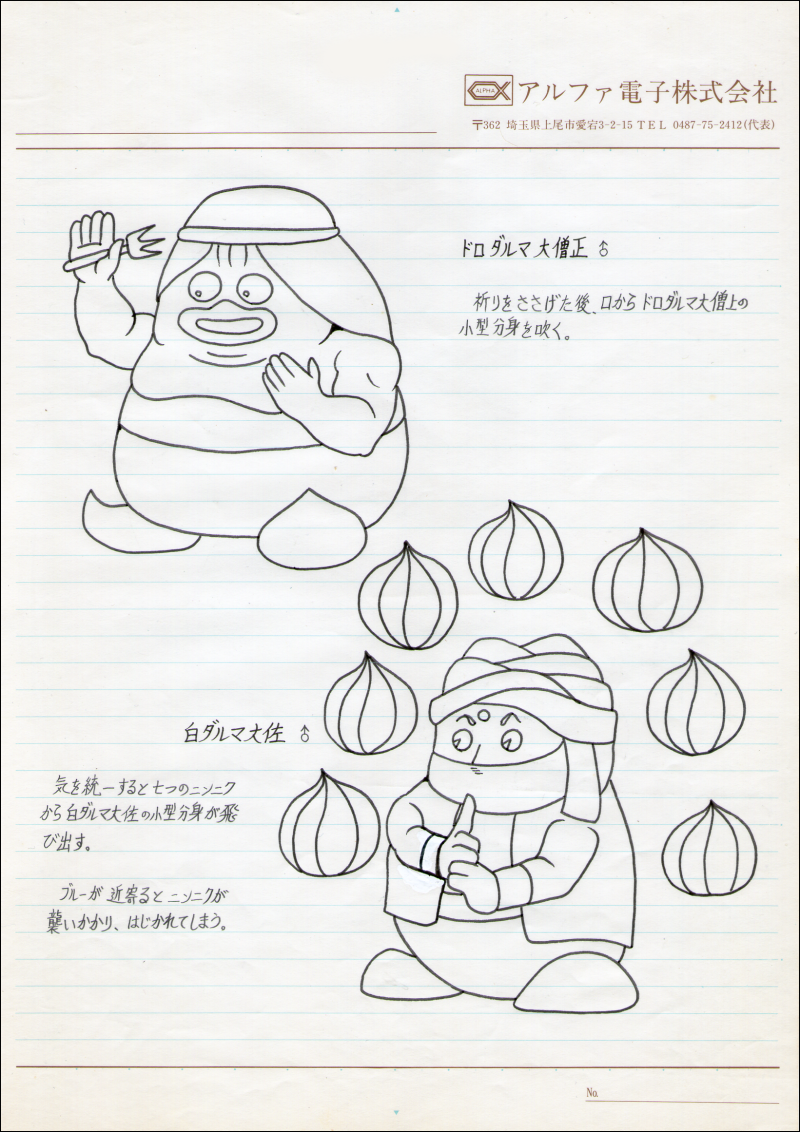 ALPHA
アルファ電子株式会社
〒362 埼玉県上尾市愛宕3-2-15 TEL 0487-75-2412(代表)
ドロダルマ大僧正 ♂
祈りをささげた後、口からドロダルマ大僧上の
小型分身を吹く。
白ダルマ大佐 ♂
気を統一すると七つのニンニク
から白ダルマ大佐の小型分身が飛
び出す。
ブルーが近寄るとニンニクが
襲いかかり、はじかれてしまう。
No.